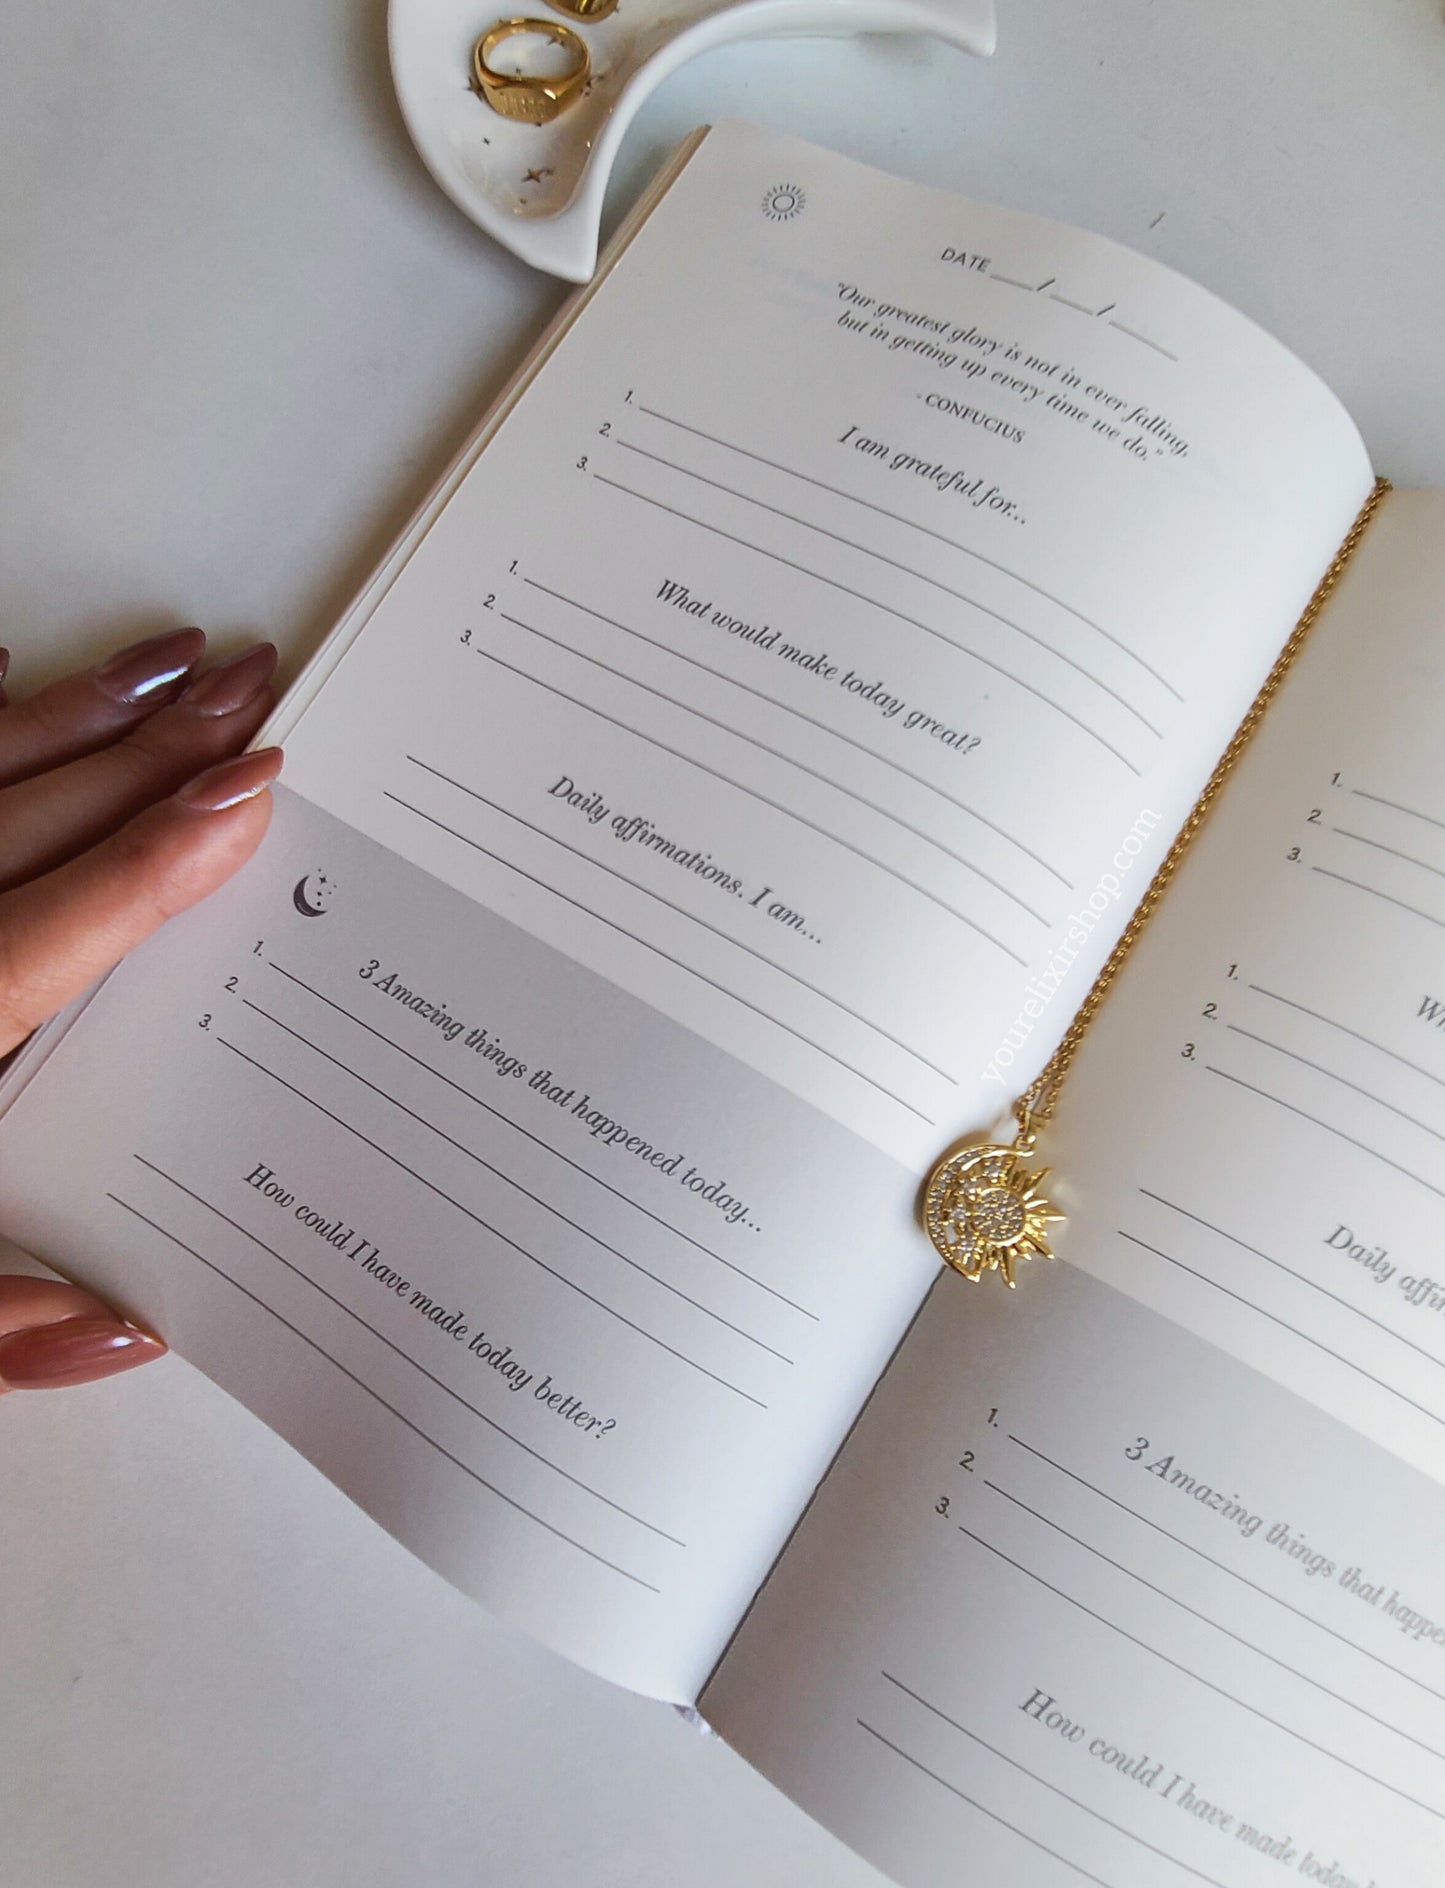 DATE __/__/__
"Our greatest glory is not in ever falling,
but in getting up every time we do."
- CONFUCIUS
I am grateful for...
1.
2.
3.
What would make today great?
1.
2.
3.
Daily affirmations. I am...
3 Amazing things that happened today...
1.
2.
3.
How could I have made today better?
yourelixirshop.com
1.
2.
3.
1.
2.
3.
Daily
3 Amazing things that
1.
2.
3.
How could I have made today